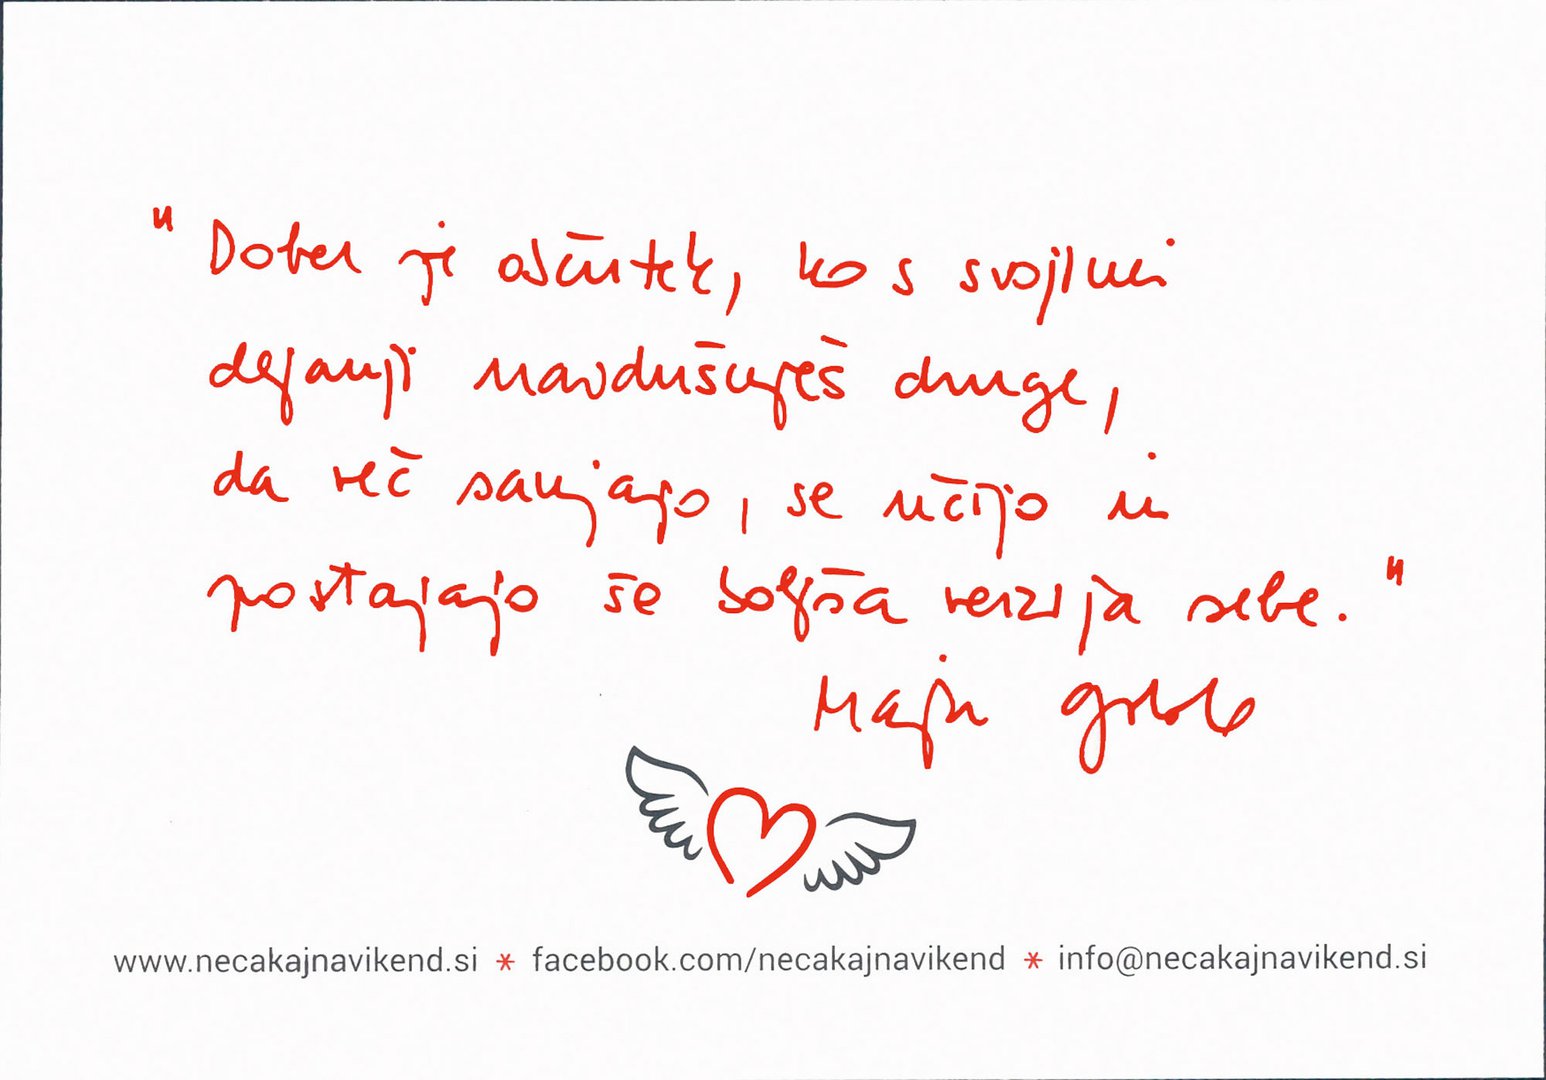 " Dober je občutek, ko s svojimi
dejanji navdušuješ druge,
da več sanjajo, se učijo in
postajajo še boljša verzija sebe. "
Maja Golob
www.necakajnavikend.si * facebook.com/necakajnavikend * info@necakajnavikend.si